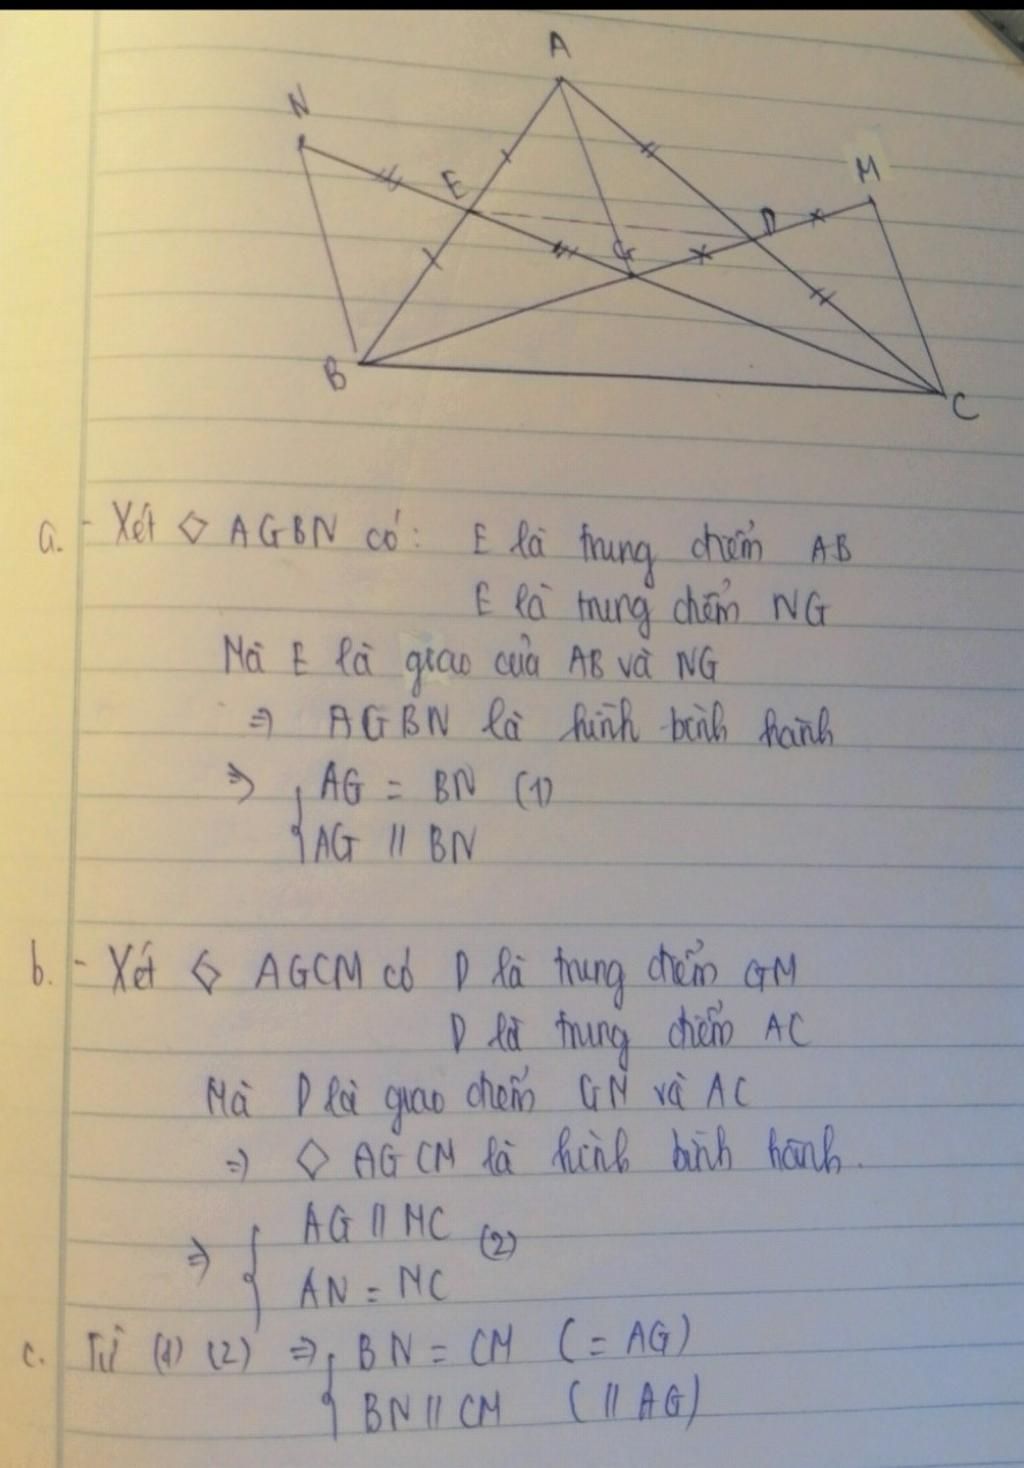 A
N
M
E
D
G
B
C
a. - Xét ◇ AGBN có: E là trung điểm AB
E là trung điểm NG
Mà E là giao của AB và NG
⇒ AGBN là hình bình hành
⇒ { AG = BN (1)
AG // BN
b. - Xét ◇ AGCM có D là trung điểm GM
D là trung điểm AC
Mà D là giao điểm GM và AC
⇒ ◇ AGCM là hình bình hành.
⇒ { AG // MC (2)
AN = MC
c. Từ (1) (2) ⇒ { BN = CM (= AG)
BN // CM (// AG)